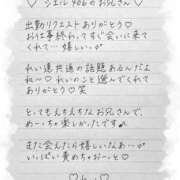 ♡ シエル 406のお兄さん ♡
出勤リクエストありがとう♡
お仕事終わりですぐ会いに来て
くれて…嬉しい…♡
れい達共通の話題あるんだよ
ね〜♡ れいのこと選んでくれて
ありがとう♡笑
とってもえちえちなお兄さんで、
めーっちゃ楽しかったです♪
また会えたら嬉しいなあ…♡
いーっぱい責めちゃお〜っと♡